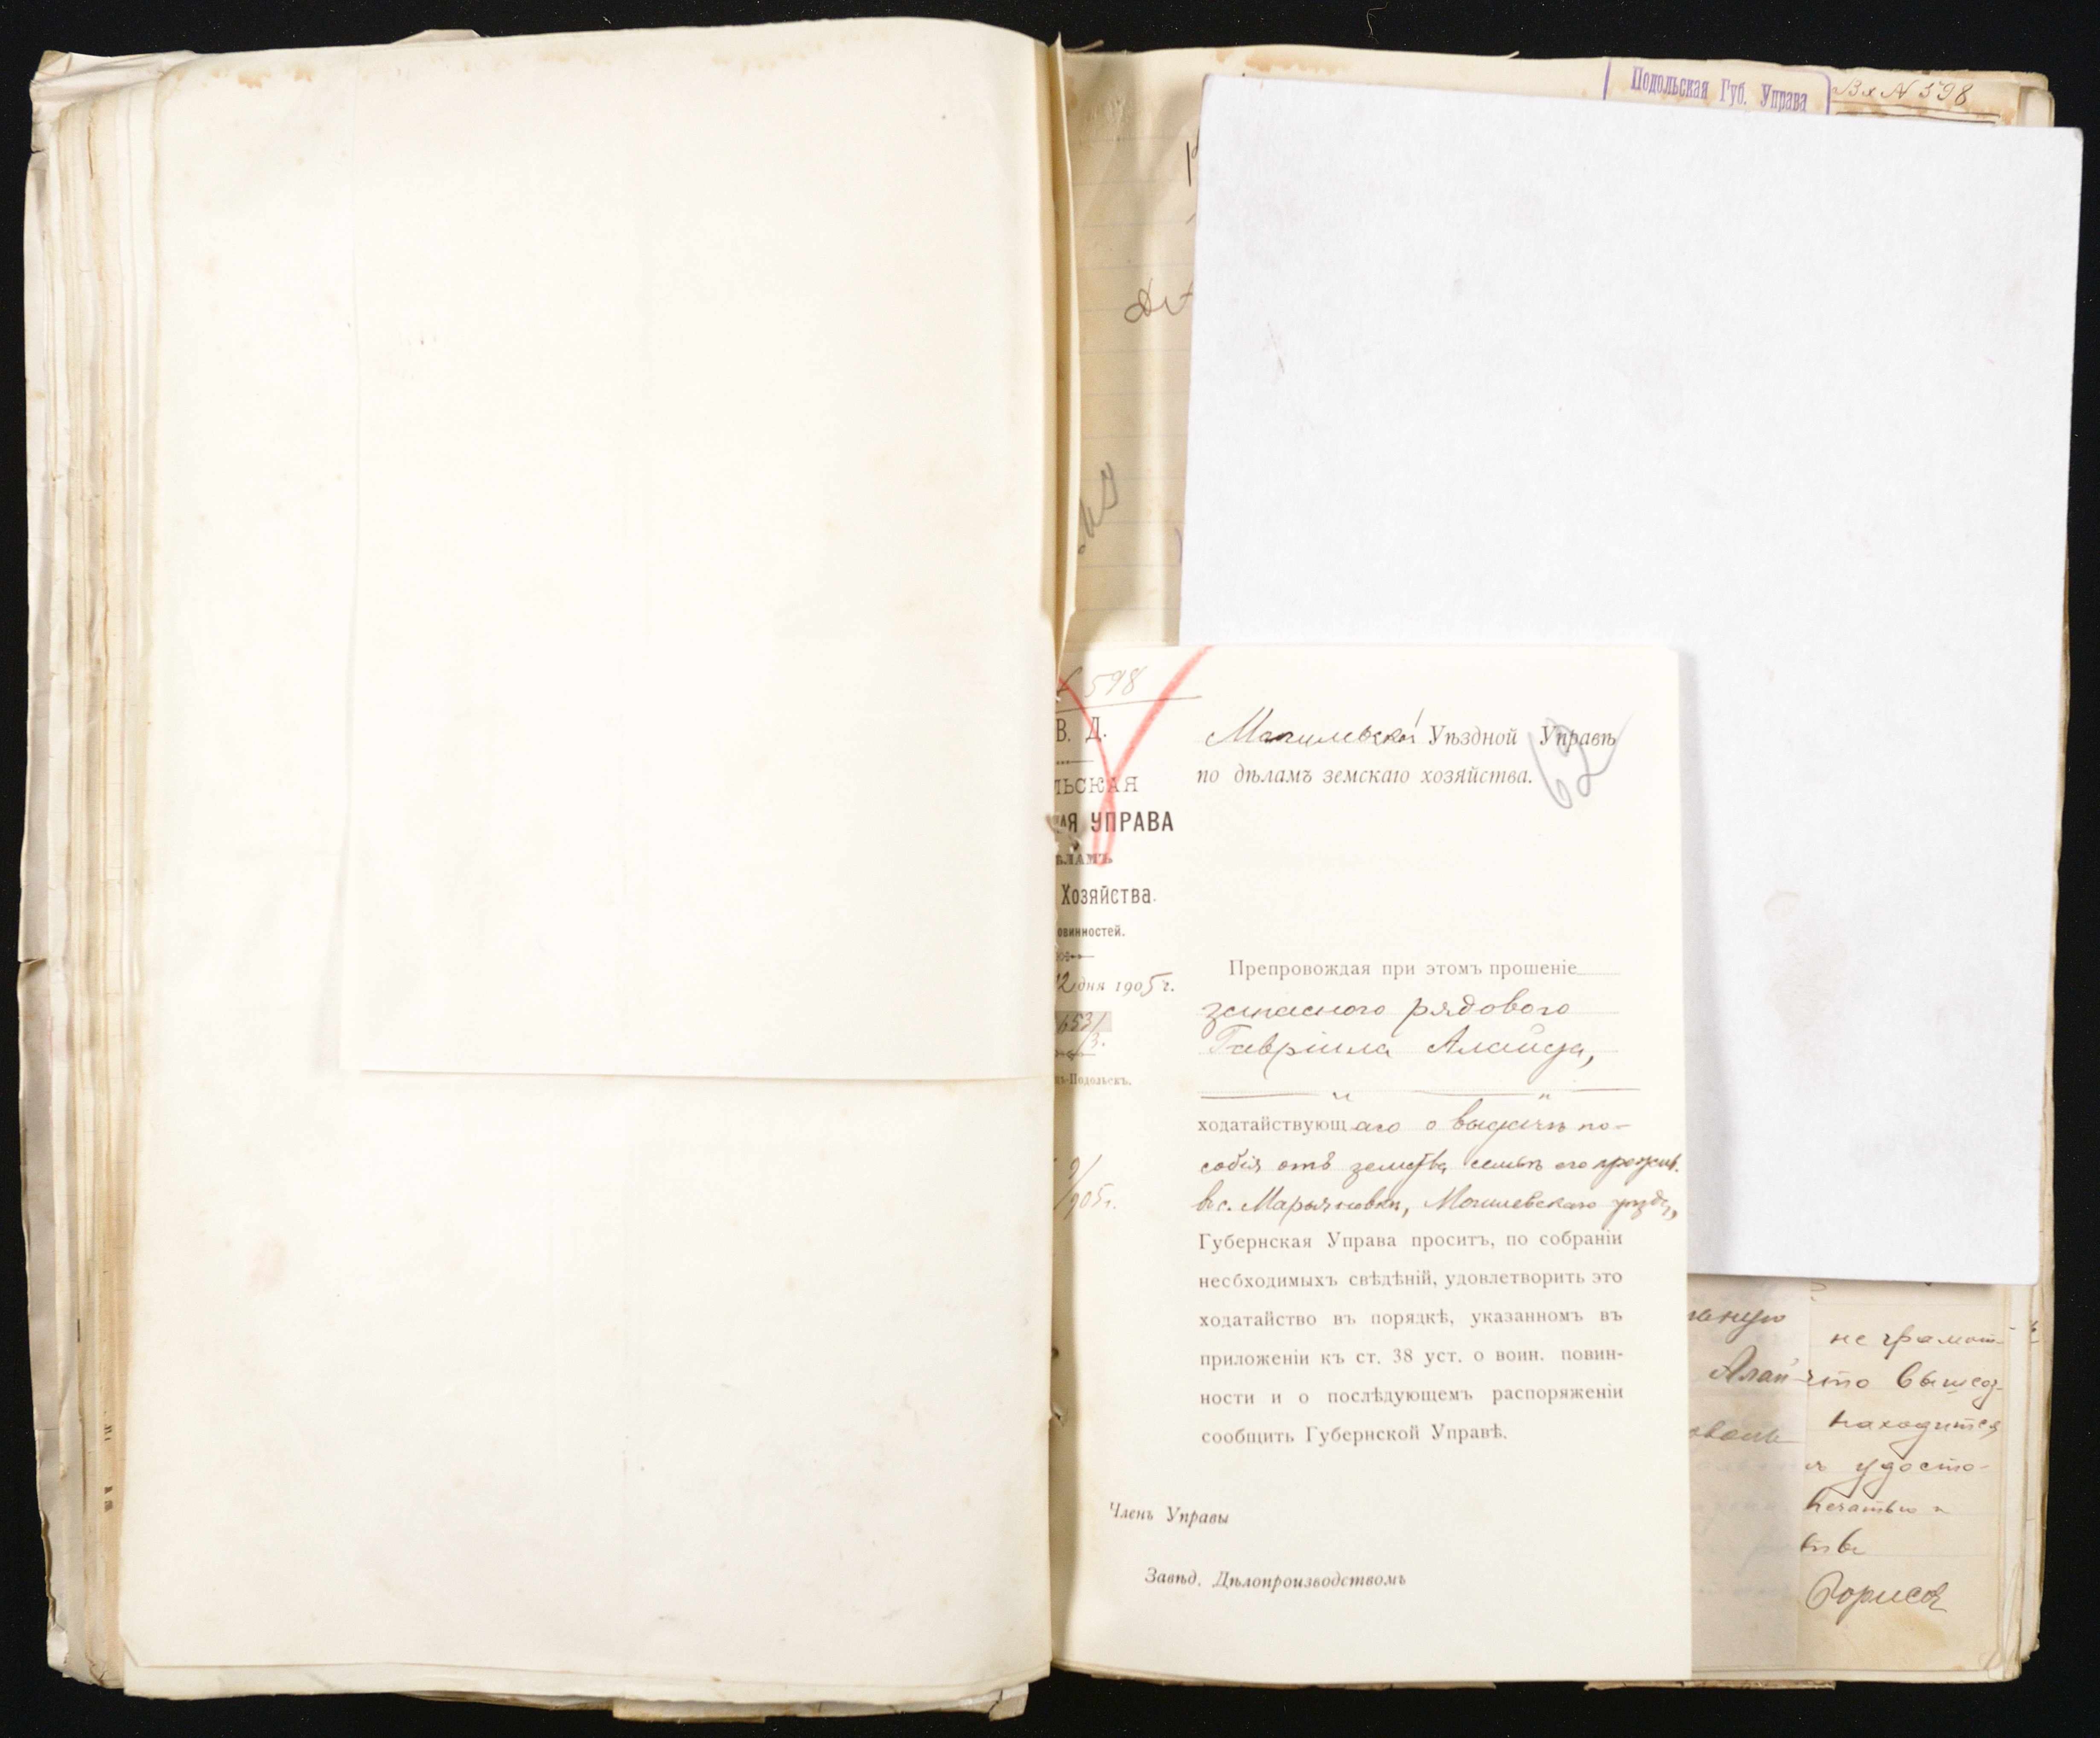 Подольская Губ. Управа
Вх № 598
598
В. Д.
ЛЬСКАЯ
АЯ УПРАВА
ѢЛАМЪ
Хозяйства.
овинностей.
12 дня 1905 г.
653/
3.
ъ-Подольскъ.
9/
905 г.
Могилевской Уѣздной Управѣ
по дѣламъ земскаго хозяйства.
62
Препровождая при этомъ прошеніе
запасного рядового
Гавріила Алайца,
ходатайствующаго о выдачѣ по-
собія отъ земства семьѣ его прожив.
в с. Марьяновки, Могилевскаго уѣзда,
Губернская Управа проситъ, по собраніи
необходимыхъ свѣдѣній, удовлетворить это
ходатайство въ порядкѣ, указанномъ въ
приложеніи къ ст. 38 уст. о воин. повин-
ности и о послѣдующемъ распоряженіи
сообщить Губернской Управѣ.
Членъ Управы
Завѣд. Дѣлопроизводствомъ
неграмот-
Алай
что вышеоз-
находится
удосто-
печатью
Борисов